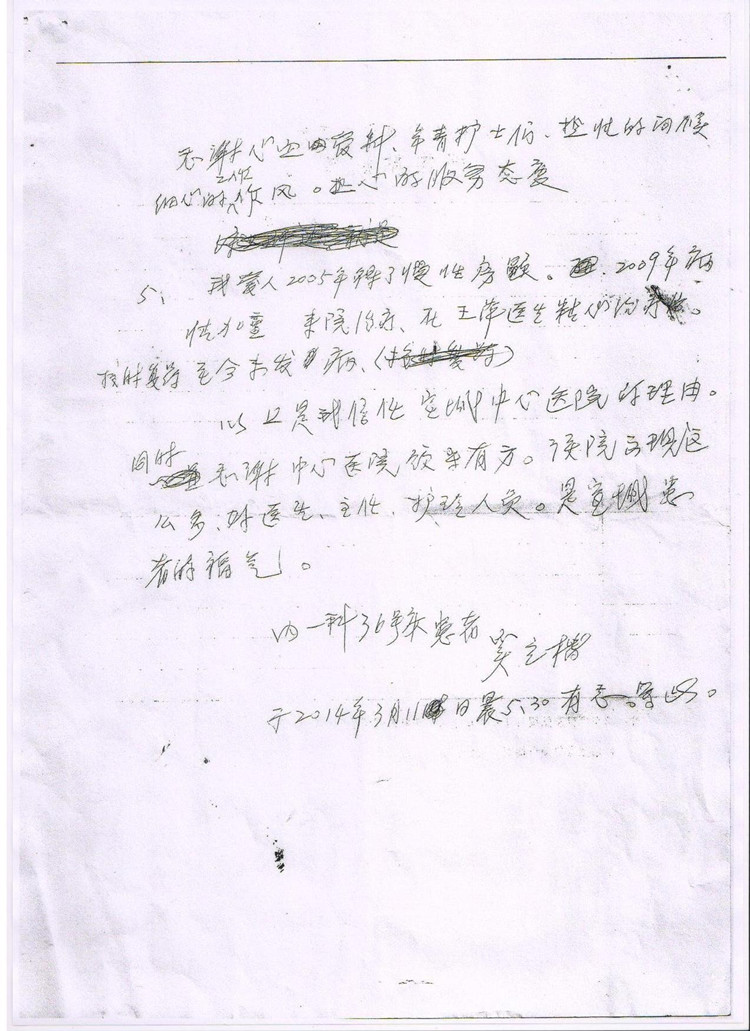 感谢心血内分科、年青护士们、热性的问候
细心的工作作风。热心的服务态度
5、我爱人2005年得了慢性房颤。2009年病
情加重 来院治疗、在王萍医生精心治疗。
按时复诊至今未发病、
以上是我信任宣城中心医院的理由。
同时感谢中心医院领导有方。该院出现这
么多、好医生、主任、护理人员。是宣城患
者的福气。
内一科36号床患者
于2014年3月11日晨5.30有感。写此。